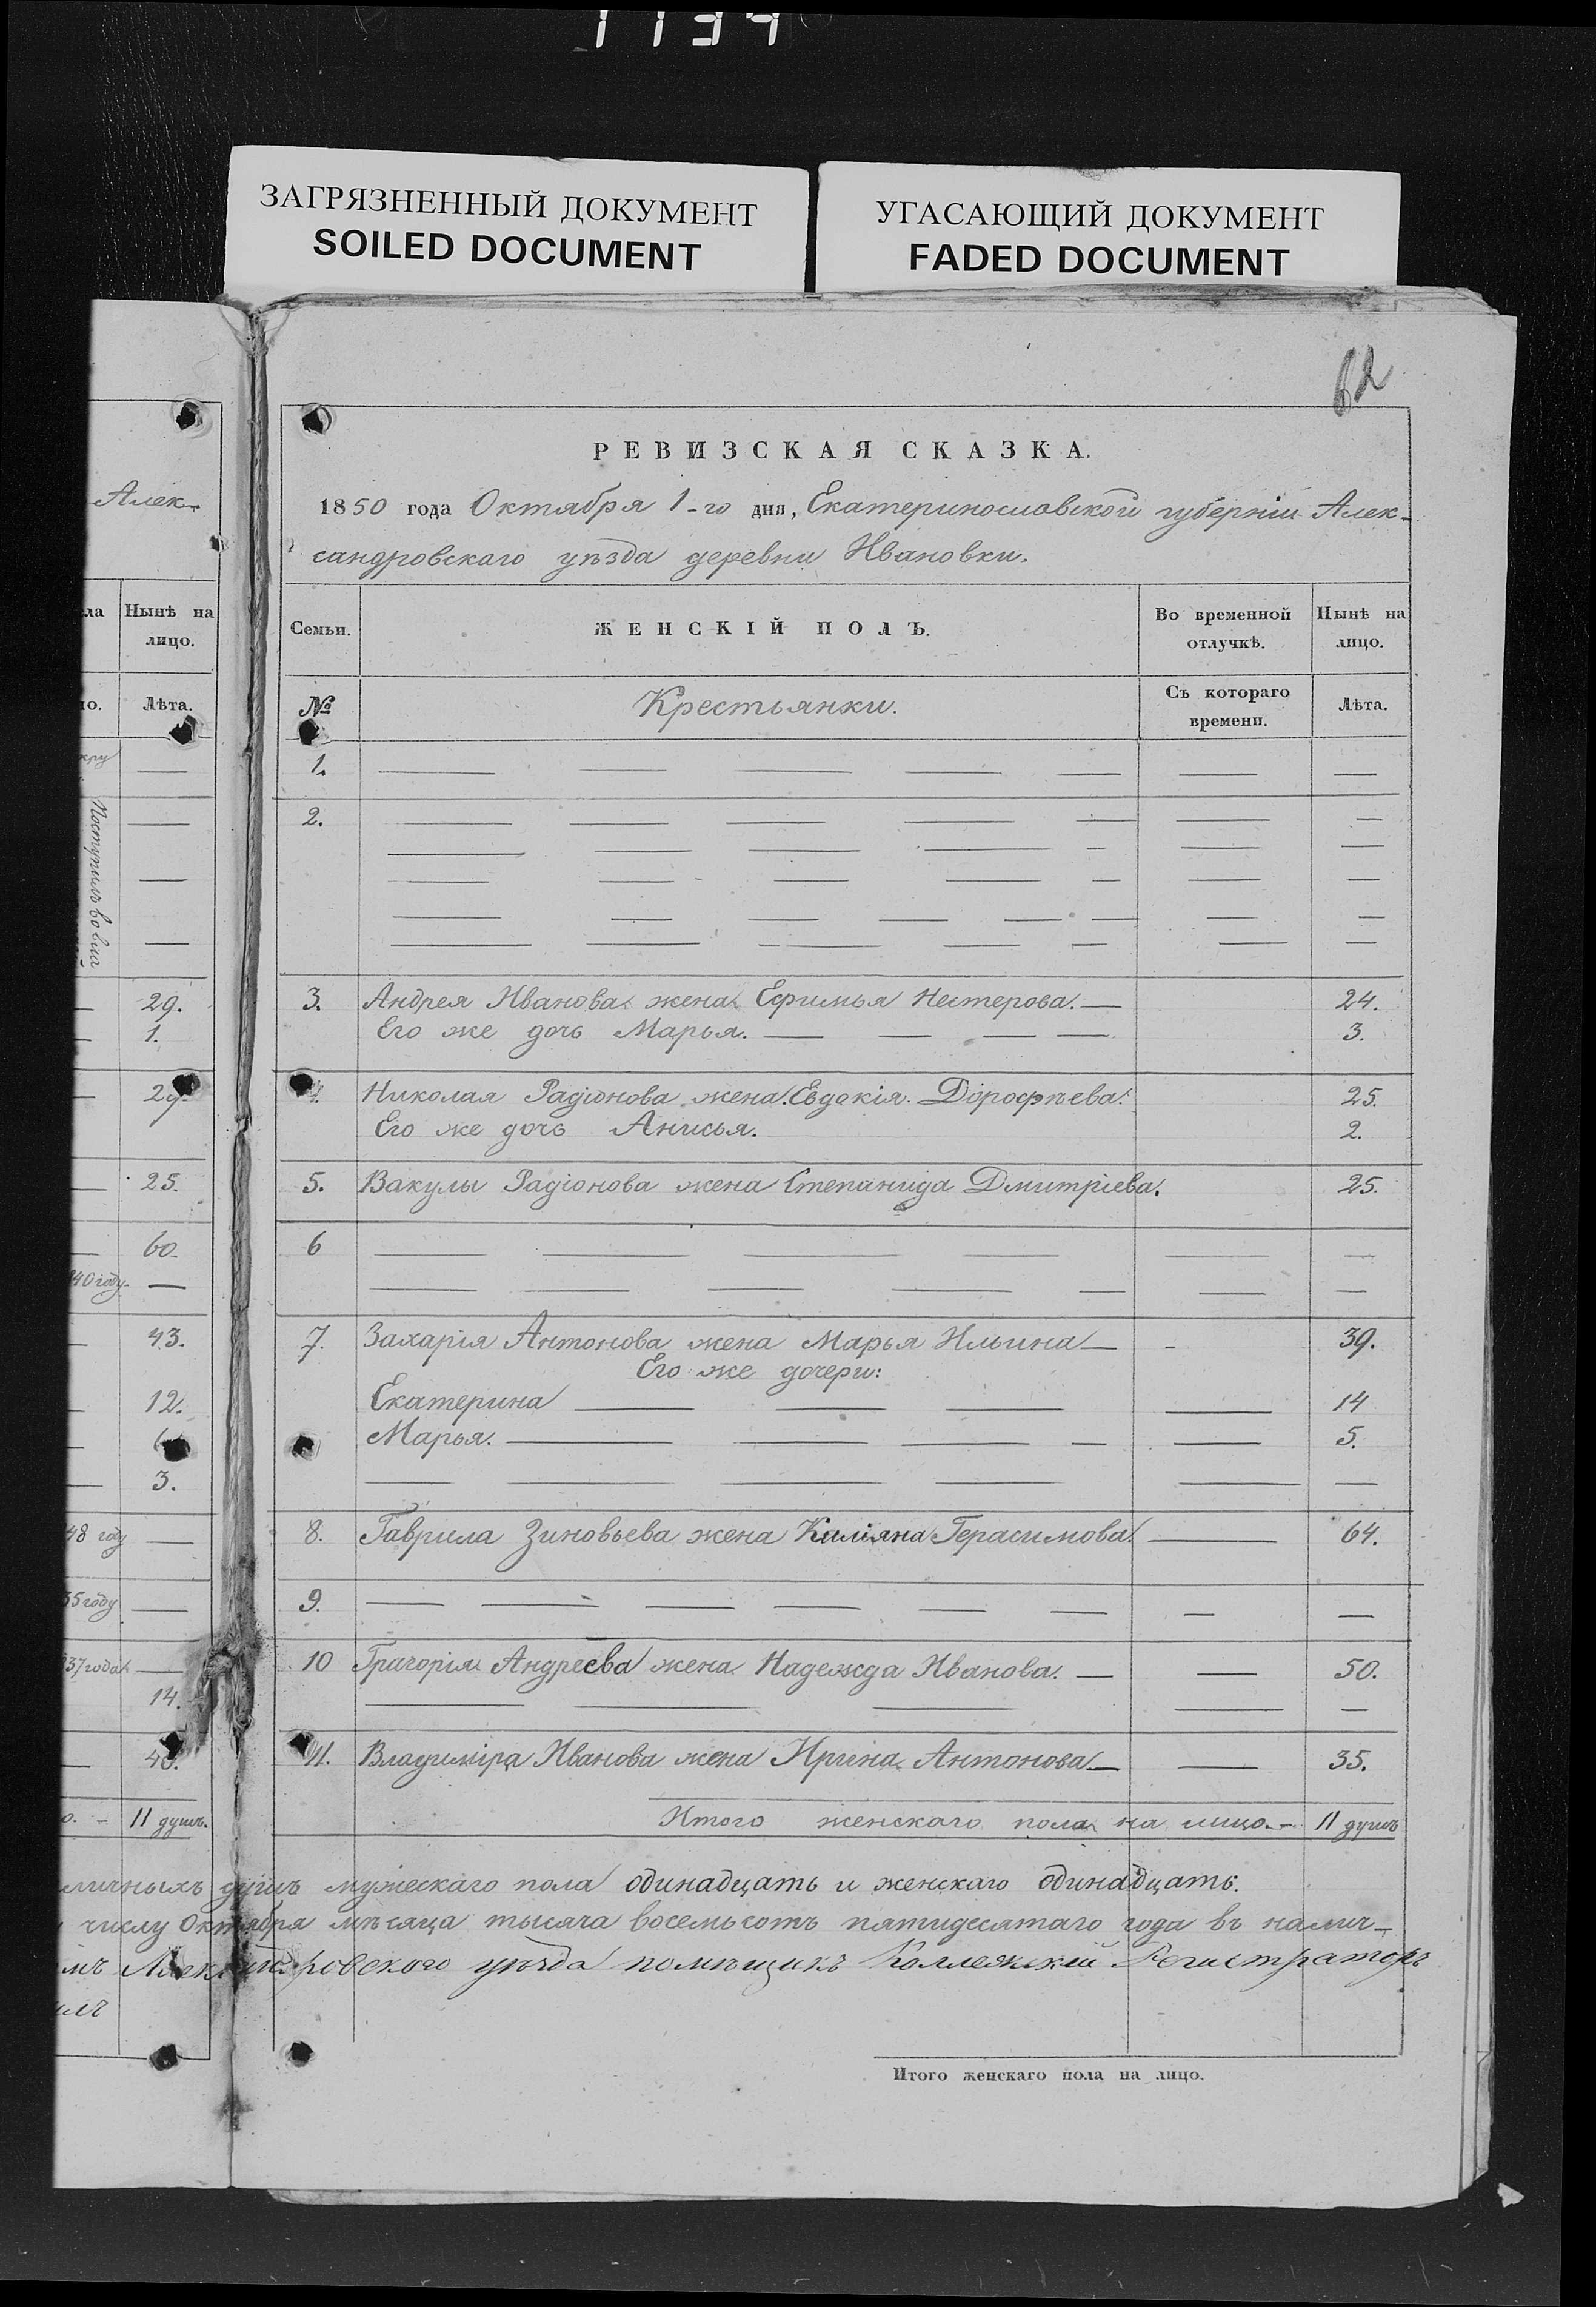 1134
ЗАГРЯЗНЕННЫЙ ДОКУМЕНТ
SOILED DOCUMENT
УГАСАЮЩИЙ ДОКУМЕНТ
FADED DOCUMENT
62
Алек-
ла Нынѣ на
лицо.
но. Лѣта.
кру —
Поступилъ во
— 29.
— 1.
— 29.
— 25.
— 60.
40 году. —
— 43.
— 12.
— 3.
48 году —
35 году —
37 года —
14.
— 40.
о. - 11 душъ.
РЕВИЗСКАЯ СКАЗКА.
1850 года Октября 1-го дня, Екатеринославской губерніи Алек-
сандровскаго уѣзда деревни Ивановки.
Семьи. ЖЕНСКІЙ ПОЛЪ. Во временной отлучкѣ. Нынѣ на лицо.
№ Крестьянки. Съ котораго времени. Лѣта.
1. — — — — — — —
2. — — — — — — —
— — — — — — —
— — — — — — —
— — — — — — — —
— — — — — — —
3. Андрея Иванова жена Ефимья Нестерова. — 24.
Его же дочь Марья. — — — — 3.
4. Николая Радіонова жена Евдокія Дорофѣева. 25.
Его же дочь Анисья. 2.
5. Вакулы Радіонова жена Степанида Дмитріева. 25.
6 — — — — — —
— — — — — — —
7. Захарія Антонова жена Марья Ильина — - 39.
Его же дочери:
Екатерина — — — — 14
Марья. — — — — — 5.
— — — — — —
8. Гаврила Зиновьева жена Киліяна Герасимова. — 64.
9. — — — — — — — —
10 Григорія Андреева жена Надежда Иванова. — — 50.
— — — — —
11. Владиміра Иванова жена Ирина Антонова — — 35.
Итого женскаго пола на лицо. - 11 душъ
личныхъ душъ мужескаго пола одинадцать и женскаго одинадцать.
числу Октября мѣсяца тысяча восемьсотъ пятидесятаго года въ налич-
мъ Александровского уѣзда помѣщикъ Коллежскій Регистраторъ
илъ
Итого женскаго пола на лицо.